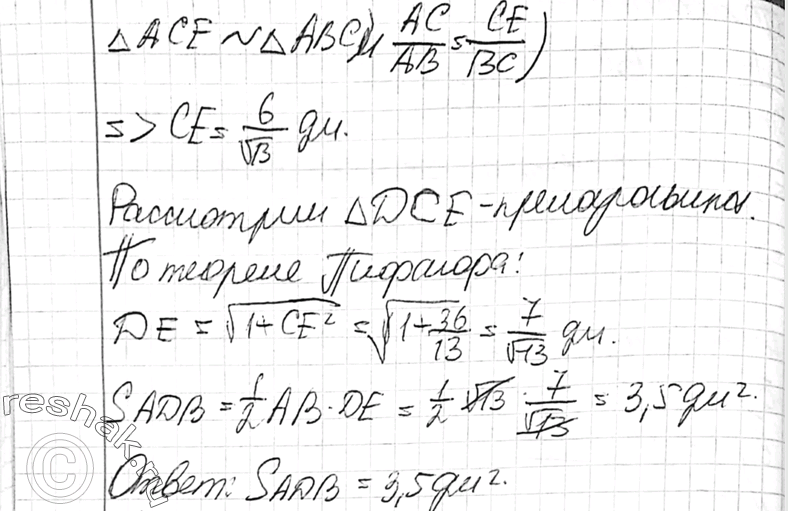 △ACE ~ △ABC (и AC/AB = CE/BC)
=> CE = 6/√13 дм.
Рассмотрим △DCE - прямоугольный.
По теореме Пифагора:
DE = √(1+CE²) = √(1+36/13) = 7/√13 дм.
SADB = 1/2 AB · DE = 1/2 √13 · 7/√13 = 3,5 дм².
Ответ: SADB = 3,5 дм².
reshak.ru